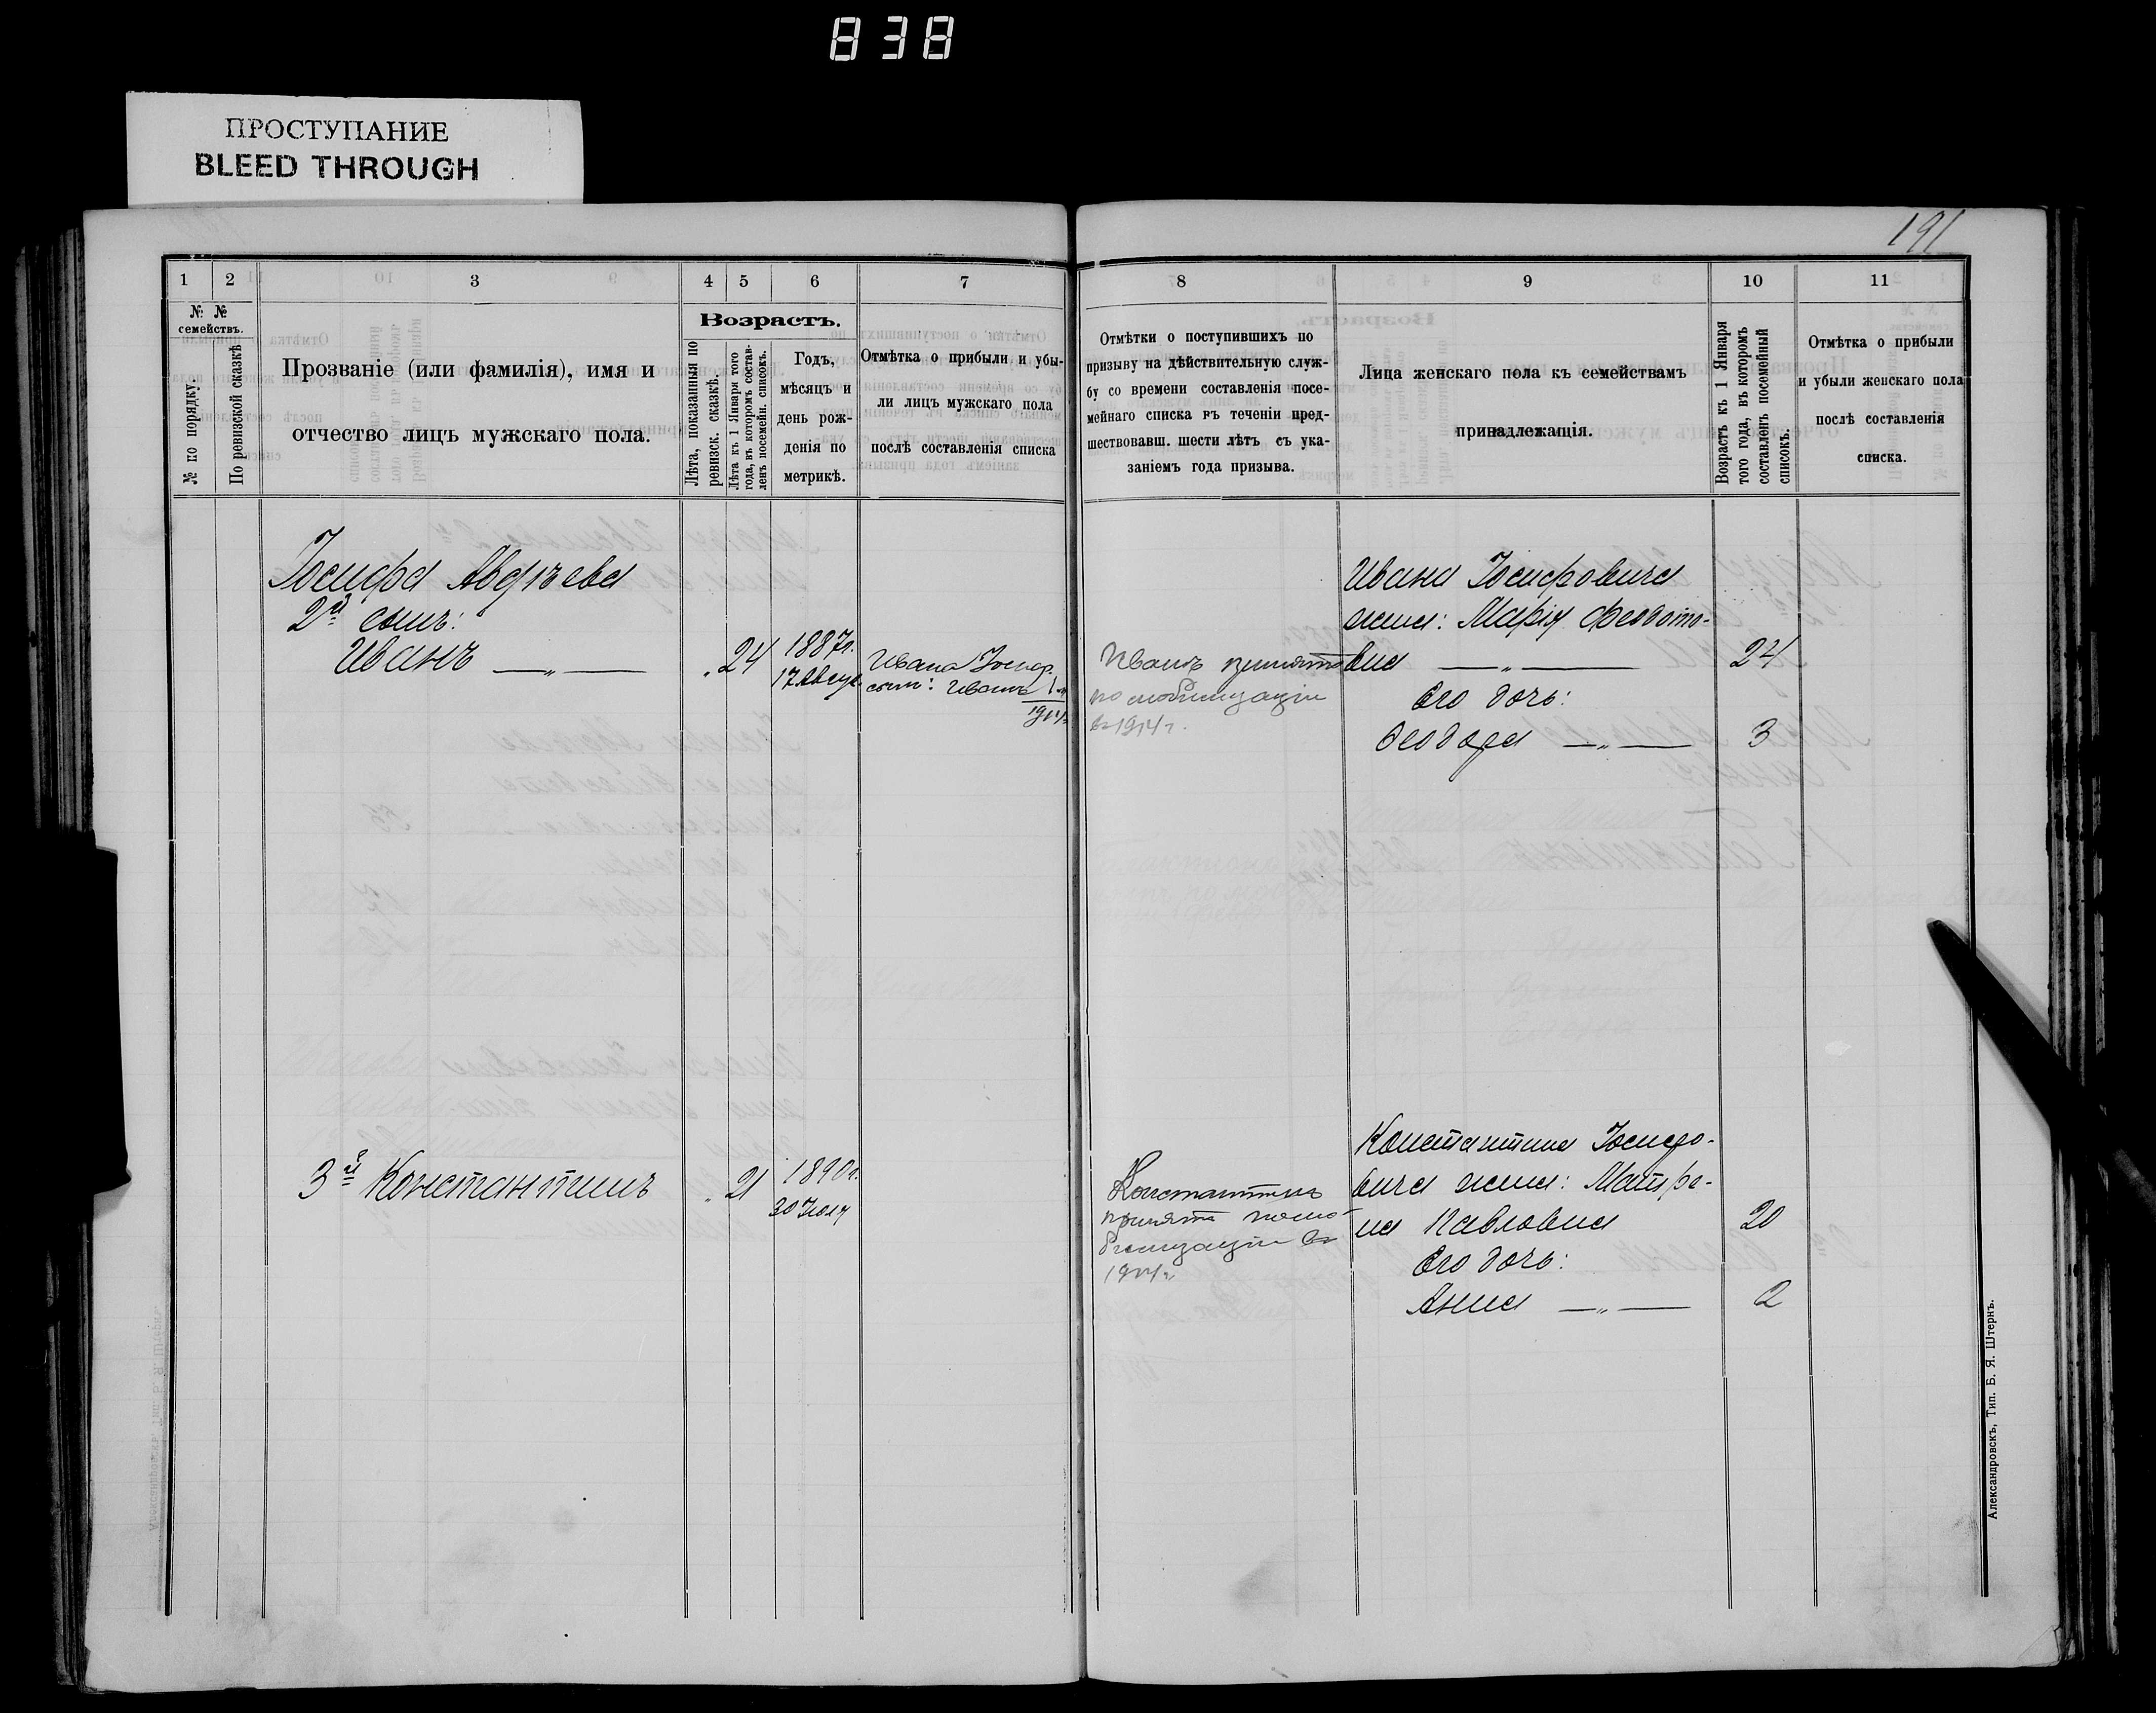 838
ПРОСТУПАНИЕ
BLEED THROUGH
191
1
2
3
4
5
6
7
8
9
10
11
№ №
семействъ.
№ по порядку.
По ревизской сказкѣ
Прозваніе (или фамилія), имя и
отчество лицъ мужскаго пола.
Возрастъ.
Лѣта, показанныя по
ревизск. сказкѣ.
Лѣта къ 1 Января того
года, въ которомъ состав-
ленъ посемейн. списокъ.
Годъ,
мѣсяцъ и
день рож-
денія по
метрикѣ.
Отмѣтка о прибыли и убы-
ли лицъ мужскаго пола
послѣ составленія списка
Отмѣтки о поступившихъ по
призыву на дѣйствительную служ-
бу со времени составленія посе-
мейнаго списка въ теченіи пред-
шествовавш. шести лѣтъ съ ука-
заніемъ года призыва.
Лица женскаго пола къ семействамъ
принадлежащія.
Возрастъ къ 1 Января
того года, въ которомъ
составленъ посемейный
списокъ.
Отмѣтка о прибыли
и убыли женскаго пола
послѣ составленія
списка.
Іосифа Авдѣева
2й сынъ:
Иванъ —„— „ 24 1887г.
17 Авгус.
Ивана Іосиф.
сынъ: Иванъ 1
1914
Иванъ принятъ
по мобилизаціи
въ 1914 г.
Ивана Іосифовича
жена: Марія Феодото-
вна —„— 24
Его дочь:
Феодора —„— 3
3й Константинъ „ 21 1890г.
30 Іюля
Константинъ
принятъ по мо-
билизаціи въ
1914 г.
Константина Іосифо-
вича жена: Матре-
на Павловна 20
Его дочь:
Анна —„— 2
Александровскъ, Тип. Б. Я. Штернъ.